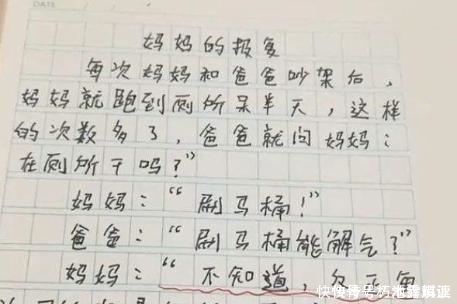 DATE
妈妈的报复
每次妈妈和爸爸吵架后,
妈妈就跑到厕所呆半天,这样
的次数多了,爸爸就问妈妈:
在厕所干吗?”
妈妈:“刷马桶!”
爸爸:“刷马桶能解气?”
妈妈:“不知道,